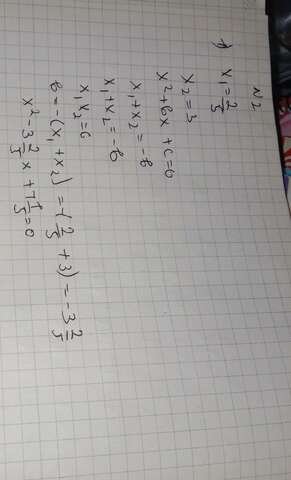 N2
1) x₁ = 2/5
x₂ = 3
x² + bx + c = 0
x₁ + x₂ = -b
x₁ + x₂ = -b
x₁x₂ = c
b = -(x₁ + x₂) = -(2/5 + 3) = -3 2/5
x² - 3 2/5 x + 1 1/5 = 0